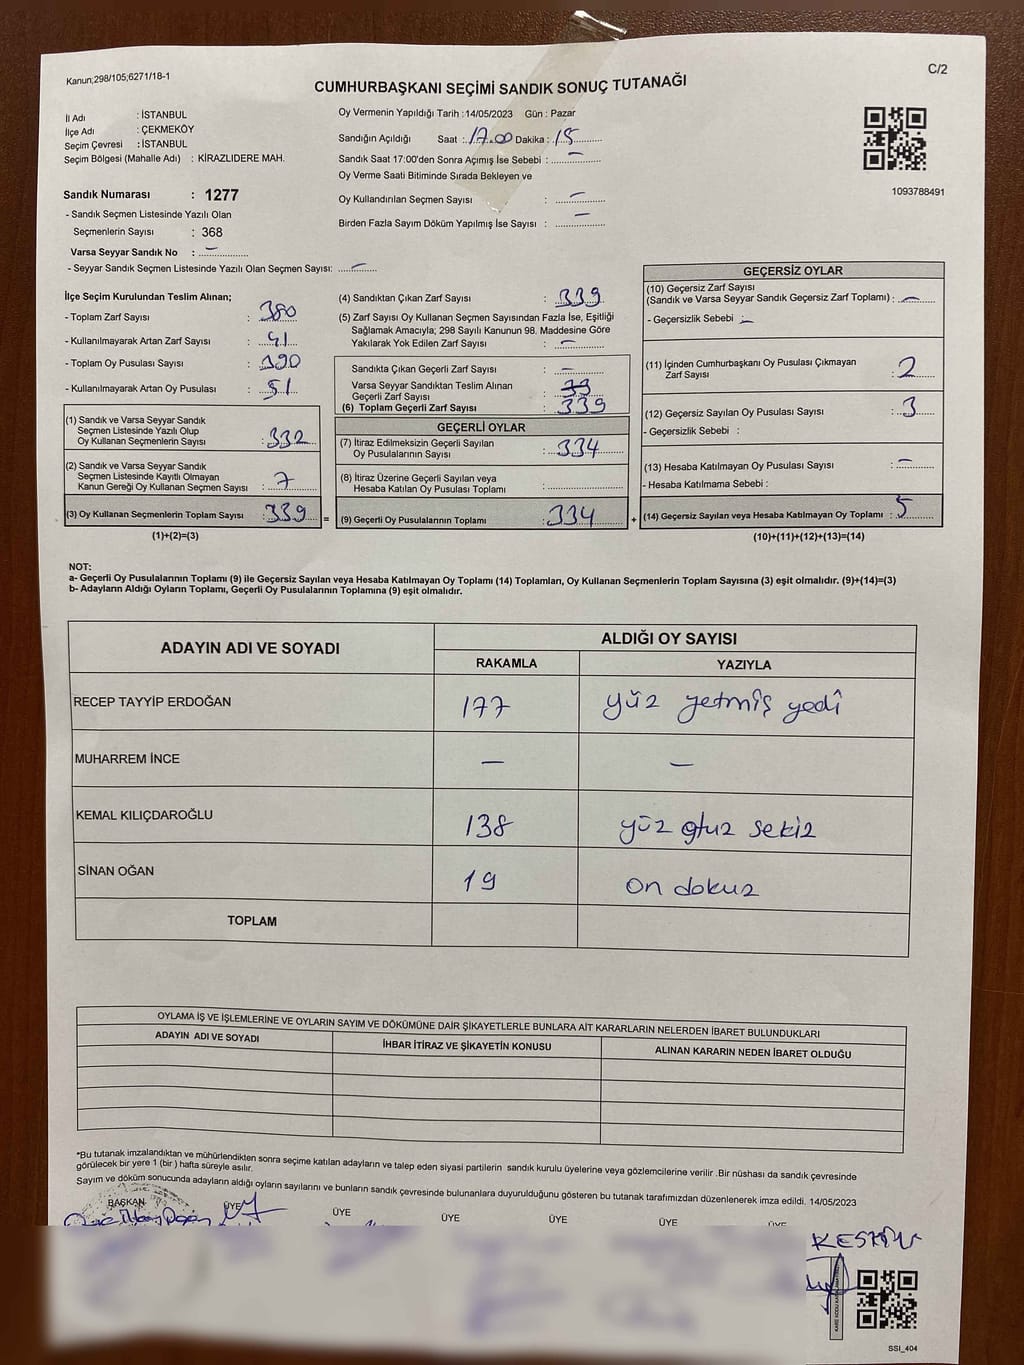 Kanun;298/105;6271/18-1
C/2
CUMHURBAŞKANI SEÇİMİ SANDIK SONUÇ TUTANAĞI
İl Adı : İSTANBUL
İlçe Adı : ÇEKMEKÖY
Seçim Çevresi : İSTANBUL
Seçim Bölgesi (Mahalle Adı) : KİRAZLIDERE MAH.
Sandık Numarası : 1277
- Sandık Seçmen Listesinde Yazılı Olan
Seçmenlerin Sayısı : 368
Varsa Seyyar Sandık No : –
- Seyyar Sandık Seçmen Listesinde Yazılı Olan Seçmen Sayısı: –
Oy Vermenin Yapıldığı Tarih :14/05/2023 Gün : Pazar
Sandığın Açıldığı Saat : 17.00 Dakika : 15
Sandık Saat 17:00'den Sonra Açımış İse Sebebi : –
Oy Verme Saati Bitiminde Sırada Bekleyen ve
Oy Kullandırılan Seçmen Sayısı : –
Birden Fazla Sayım Döküm Yapılmış İse Sayısı : –
1093788491
İlçe Seçim Kurulundan Teslim Alınan;
- Toplam Zarf Sayısı : 380
- Kullanılmayarak Artan Zarf Sayısı : 41
- Toplam Oy Pusulası Sayısı : 390
- Kullanılmayarak Artan Oy Pusulası : 51
(1) Sandık ve Varsa Seyyar Sandık
Seçmen Listesinde Yazılı Olup
Oy Kullanan Seçmenlerin Sayısı : 332
(2) Sandık ve Varsa Seyyar Sandık
Seçmen Listesinde Kayıtlı Olmayan
Kanun Gereği Oy Kullanan Seçmen Sayısı : 7
(3) Oy Kullanan Seçmenlerin Toplam Sayısı : 339 =
(1)+(2)=(3)
(4) Sandıktan Çıkan Zarf Sayısı : 339
(5) Zarf Sayısı Oy Kullanan Seçmen Sayısından Fazla İse, Eşitliği
Sağlamak Amacıyla; 298 Sayılı Kanunun 98. Maddesine Göre
Yakılarak Yok Edilen Zarf Sayısı : –
Sandıkta Çıkan Geçerli Zarf Sayısı : –
Varsa Seyyar Sandıktan Teslim Alınan
Geçerli Zarf Sayısı :
(6) Toplam Geçerli Zarf Sayısı : 339
GEÇERLİ OYLAR
(7) İtiraz Edilmeksizin Geçerli Sayılan
Oy Pusulalarının Sayısı : 334
(8) İtiraz Üzerine Geçerli Sayılan veya
Hesaba Katılan Oy Pusulası Toplamı :
(9) Geçerli Oy Pusulalarının Toplamı : 334 +
GEÇERSİZ OYLAR
(10) Geçersiz Zarf Sayısı
(Sandık ve Varsa Seyyar Sandık Geçersiz Zarf Toplamı) : –
- Geçersizlik Sebebi : –
(11) İçinden Cumhurbaşkanı Oy Pusulası Çıkmayan
Zarf Sayısı : 2
(12) Geçersiz Sayılan Oy Pusulası Sayısı : 3
- Geçersizlik Sebebi :
(13) Hesaba Katılmayan Oy Pusulası Sayısı : –
- Hesaba Katılmama Sebebi :
(14) Geçersiz Sayılan veya Hesaba Katılmayan Oy Toplamı : 5
(10)+(11)+(12)+(13)=(14)
NOT:
a- Geçerli Oy Pusulalarının Toplamı (9) ile Geçersiz Sayılan veya Hesaba Katılmayan Oy Toplamı (14) Toplamları, Oy Kullanan Seçmenlerin Toplam Sayısına (3) eşit olmalıdır. (9)+(14)=(3)
b- Adayların Aldığı Oyların Toplamı, Geçerli Oy Pusulalarının Toplamına (9) eşit olmalıdır.
ADAYIN ADI VE SOYADI ALDIĞI OY SAYISI
RAKAMLA YAZIYLA
RECEP TAYYİP ERDOĞAN 177 yüz yetmiş yedi
MUHARREM İNCE – –
KEMAL KILIÇDAROĞLU 138 yüz otuz sekiz
SİNAN OĞAN 19 on dokuz
TOPLAM
OYLAMA İŞ VE İŞLEMLERİNE VE OYLARIN SAYIM VE DÖKÜMÜNE DAİR ŞİKAYETLERLE BUNLARA AİT KARARLARIN NELERDEN İBARET BULUNDUKLARI
ADAYIN ADI VE SOYADI İHBAR İTİRAZ VE ŞİKAYETİN KONUSU ALINAN KARARIN NEDEN İBARET OLDUĞU
*Bu tutanak imzalandıktan ve mühürlendikten sonra seçime katılan adayların ve talep eden siyasi partilerin sandık kurulu üyelerine veya gözlemcilerine verilir .Bir nüshası da sandık çevresinde
görülecek bir yere 1 (bir ) hafta süreyle asılır.
Sayım ve döküm sonucunda adayların aldığı oyların sayılarını ve bunların sandık çevresinde bulunanlara duyurulduğunu gösteren bu tutanak tarafımızdan düzenlenerek imza edildi. 14/05/2023
BAŞKAN ÜYE ÜYE ÜYE ÜYE ÜYE ÜYE
KESKİN
SSI_404